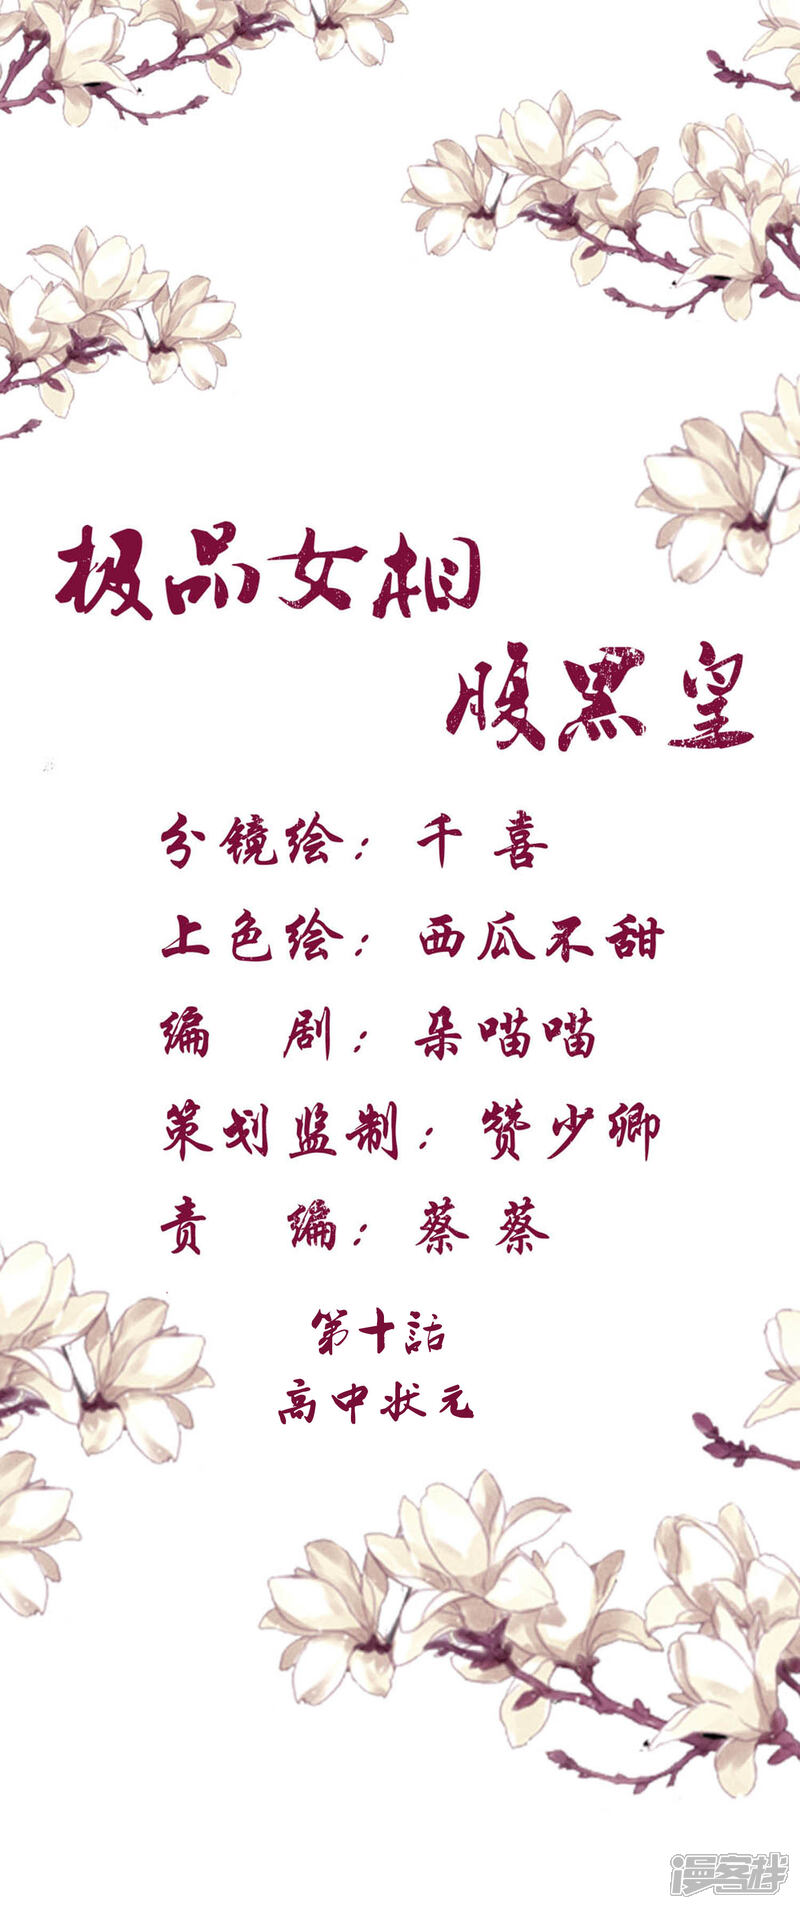 极品女相
腹黑皇
分镜绘：千喜
上色绘：西瓜不甜
编 剧：朵喵喵
策划监制：赞少卿
责 编：蔡蔡
第十話
高中状元
漫客栈